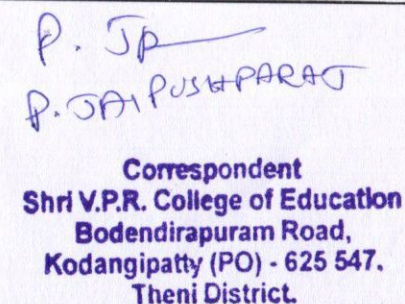 P. JP
P. JAI PUSHPARAJ
Correspondent
Shri V.P.R. College of Education
Bodendirapuram Road,
Kodangipatty (PO) - 625 547.
Theni District.